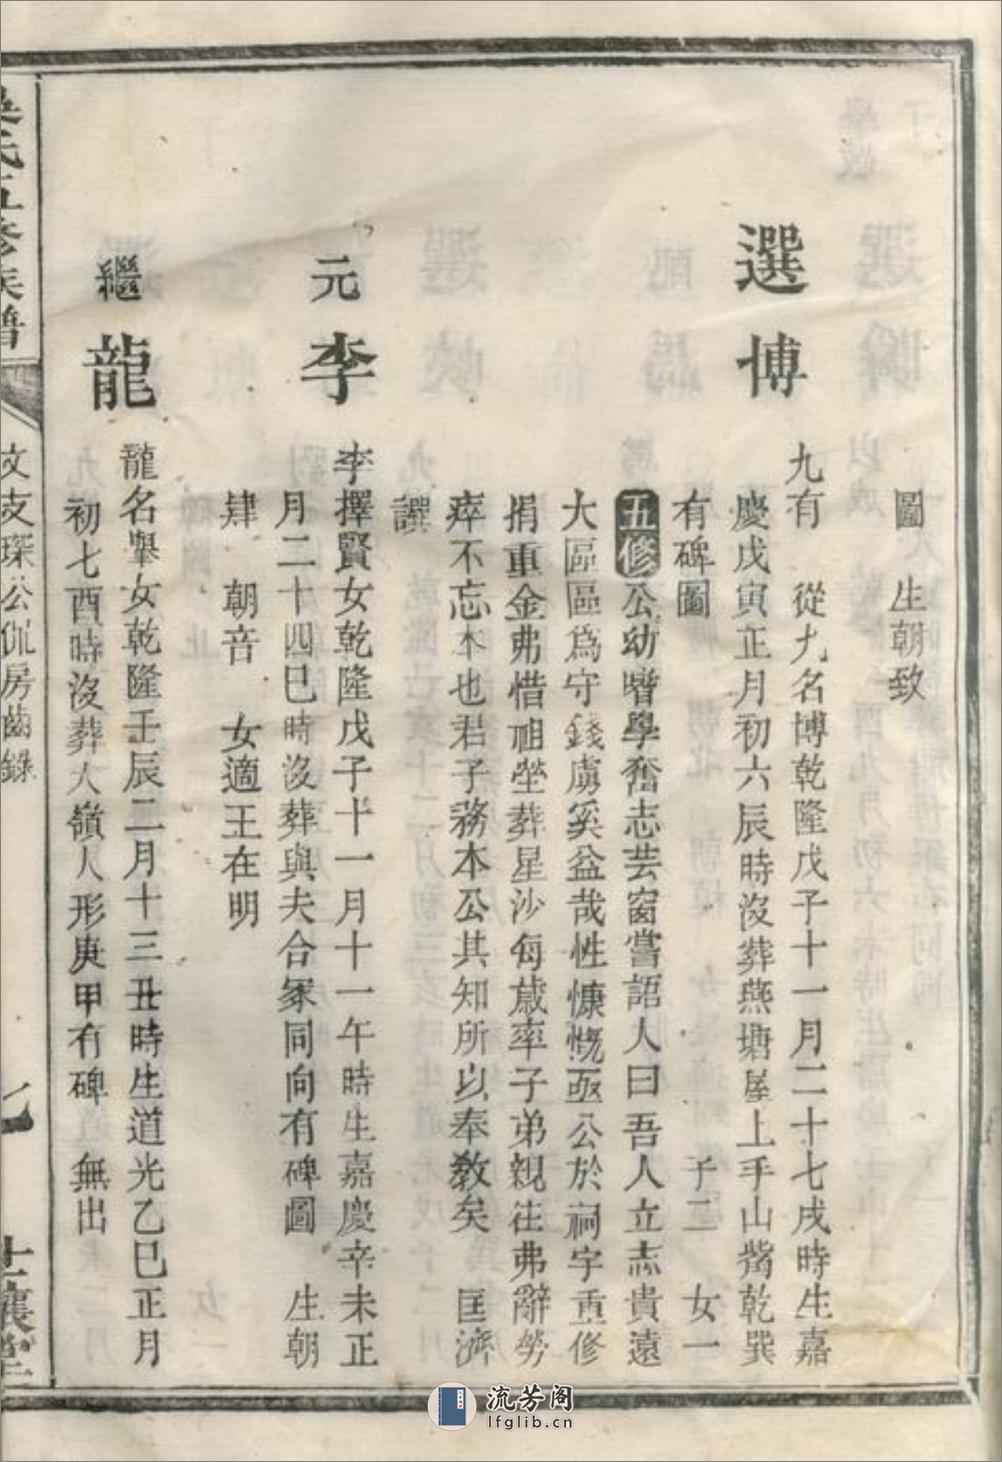 圖 生朝致
選博
九有 從九名博乾隆戊子十一月二十七戌時生嘉
慶戊寅正月初六辰時沒葬燕塘屋上手山觜乾巽
有碑圖 子二 女一
五修公幼嗜學奮志芸窗嘗語人曰吾人立志貴遠
大區區為守錢虜奚益哉性慷慨亟公於祠宇重修
捐重金弗惜祖坐葬星沙每歲率子弟親往弗辭勞
瘁不忘本也君子務本公其知所以奉教矣 匡濟
譔
元李
李擇賢女乾隆戊子十一月十一午時生嘉慶辛未正
月二十四巳時沒葬與夫合冢同向有碑圖 生朝
肄 朝音 女適王在明
繼龍
龍名舉女乾隆壬辰二月十三丑時生道光乙巳正月
初七酉時沒葬大嶺人形庚甲有碑 無出
氏五修族譜
文支琛公侃房齒錄
流芳阁
lfglib.cn